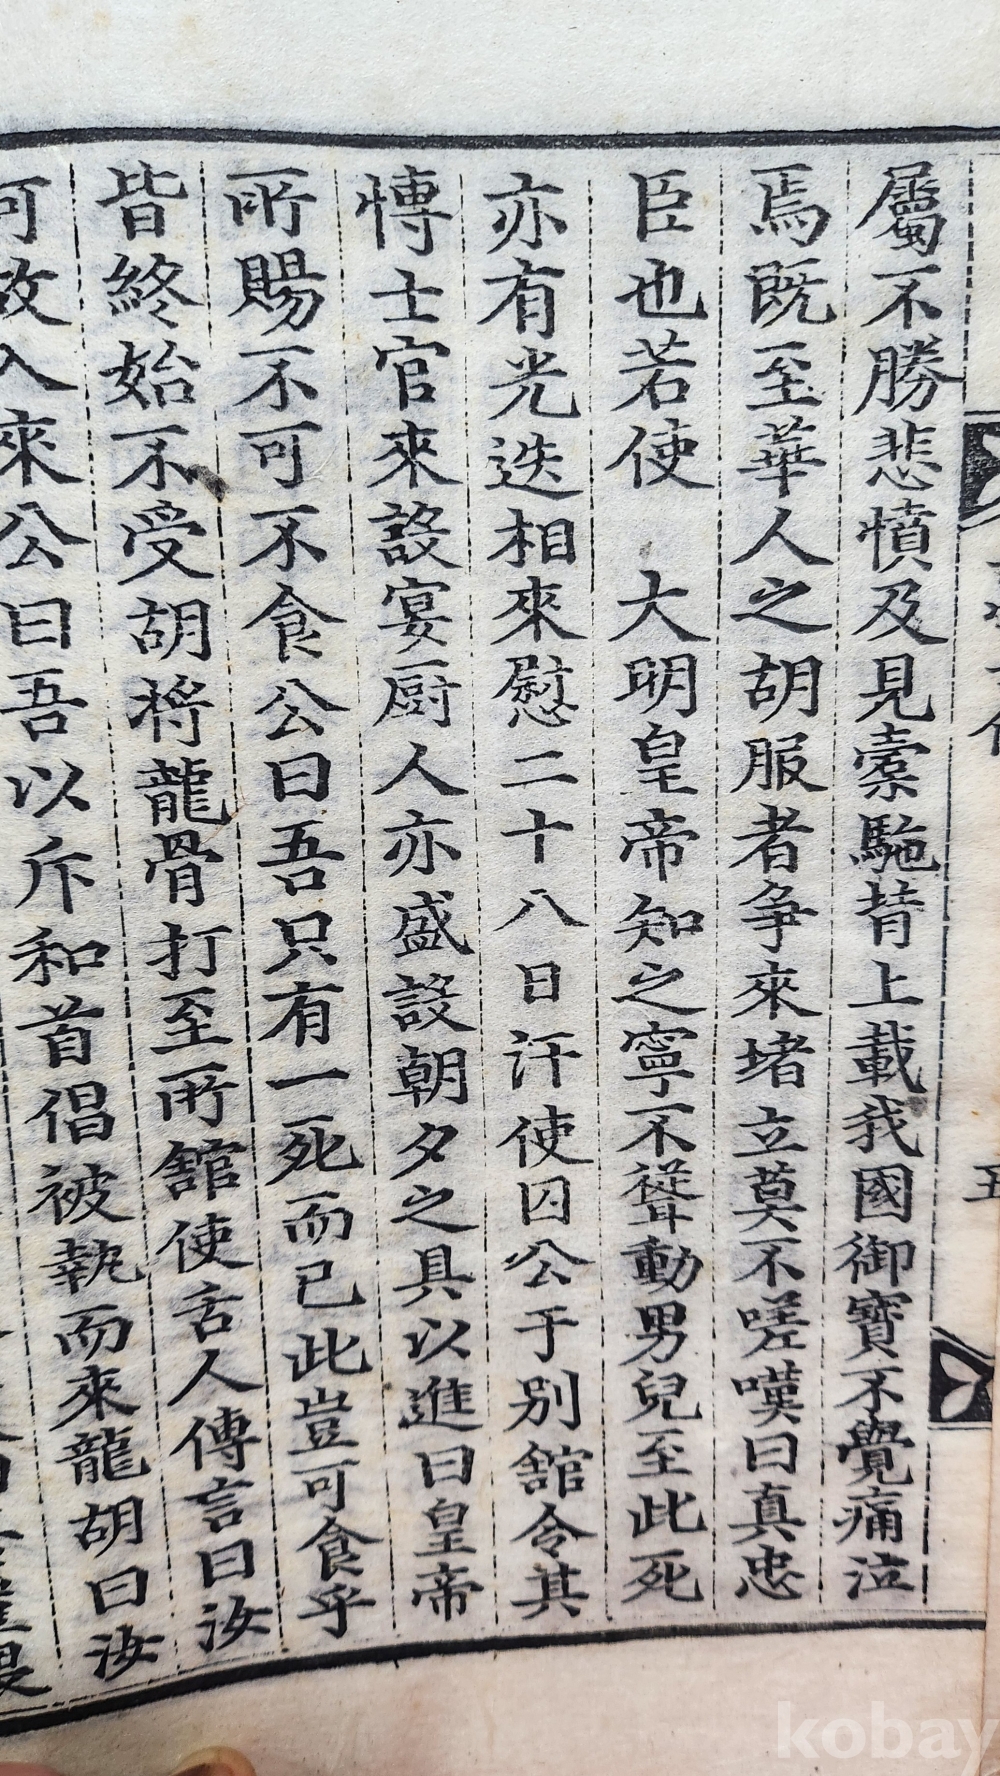 屬不勝悲憤及見橐駞背上載我國御寶不覺痛泣
焉既至華人之胡服者争來堵立莫不嗟嘆曰真忠
臣也若使 大明皇帝知之寧不聳動男兒至此死
亦有光迭相來慰二十八日汗使囚公于别舘令其
博士官來設宴厨人亦盛設朝夕之具以進曰皇帝
所賜不可不食公曰吾只有一死而已此豈可食乎
皆終始不受胡將龍骨打至所舘使舌人傳言曰汝
可故入來公曰吾以斥和首倡被執而來龍胡曰汝
五
kobay